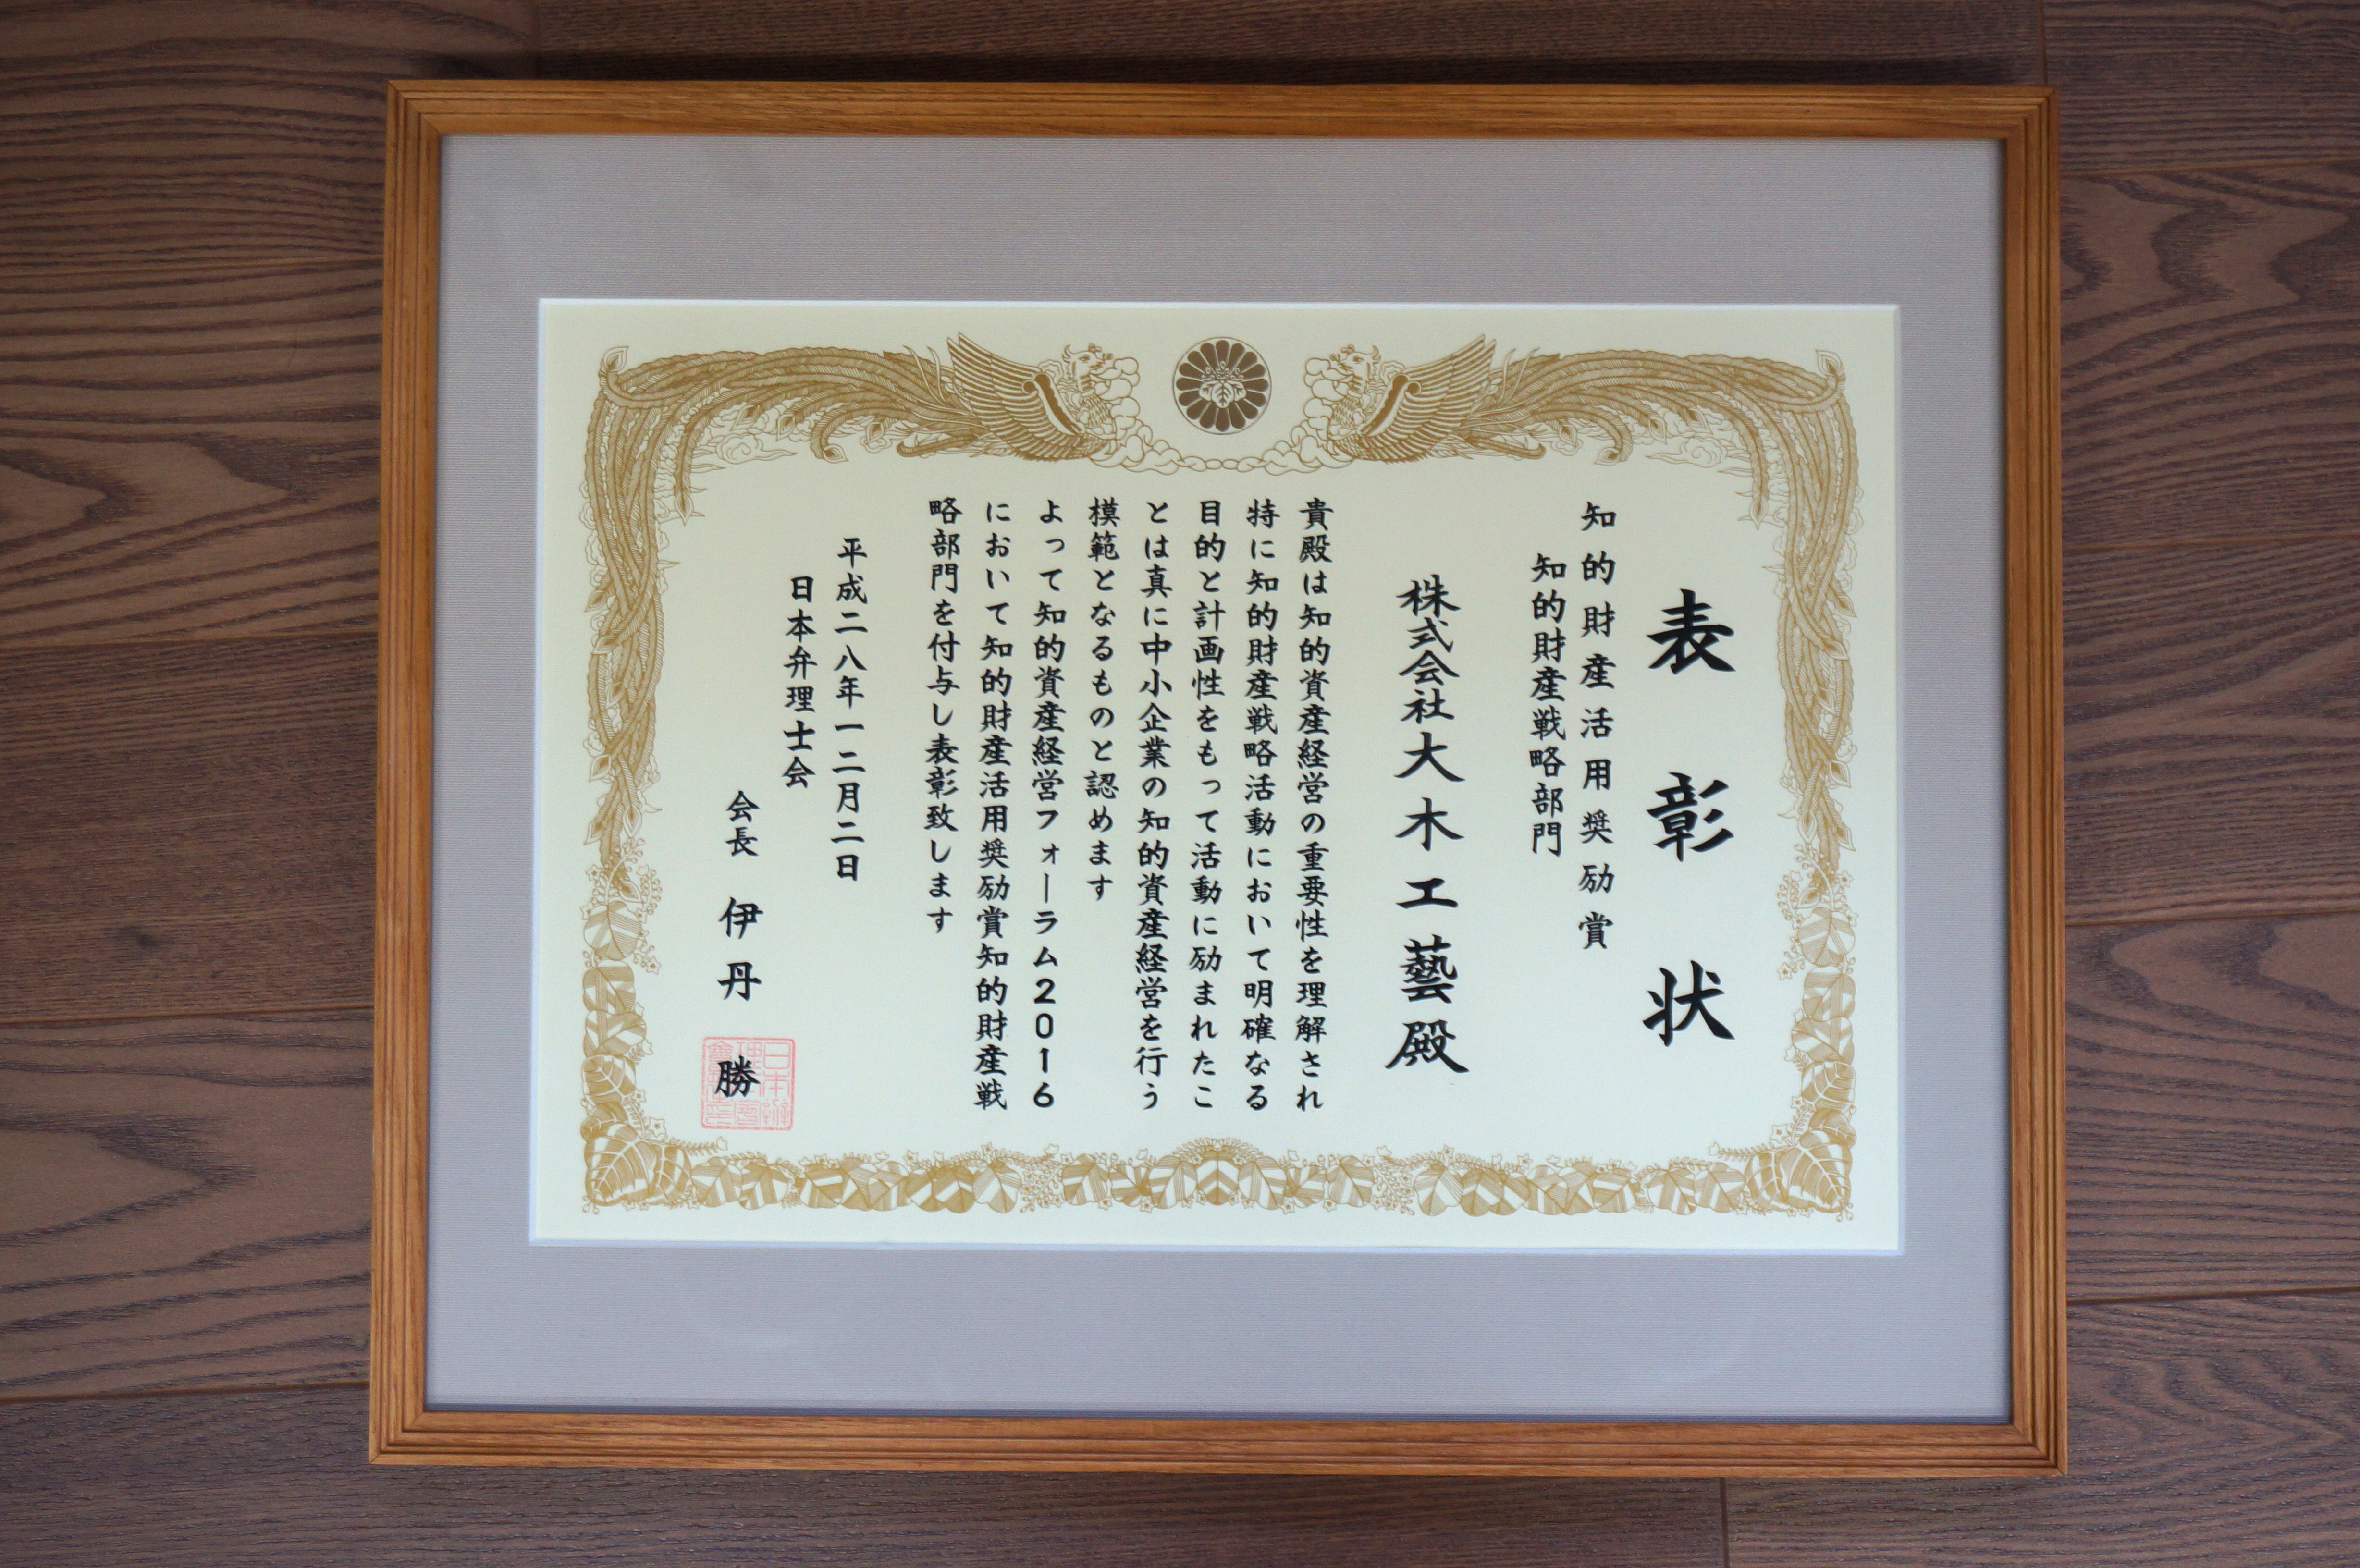 表彰状
知的財産活用奨励賞
知的財産戦略部門
株式会社大木工藝殿
貴殿は知的資産経営の重要性を理解され
特に知的財産戦略活動において明確なる
目的と計画性をもって活動に励まれたこ
とは真に中小企業の知的資産経営を行う
模範となるものと認めます
よって知的資産経営フォーラム2016
において知的財産活用奨励賞知的財産戦
略部門を付与し表彰致します
平成二八年一二月二日
日本弁理士会
会長 伊丹 勝